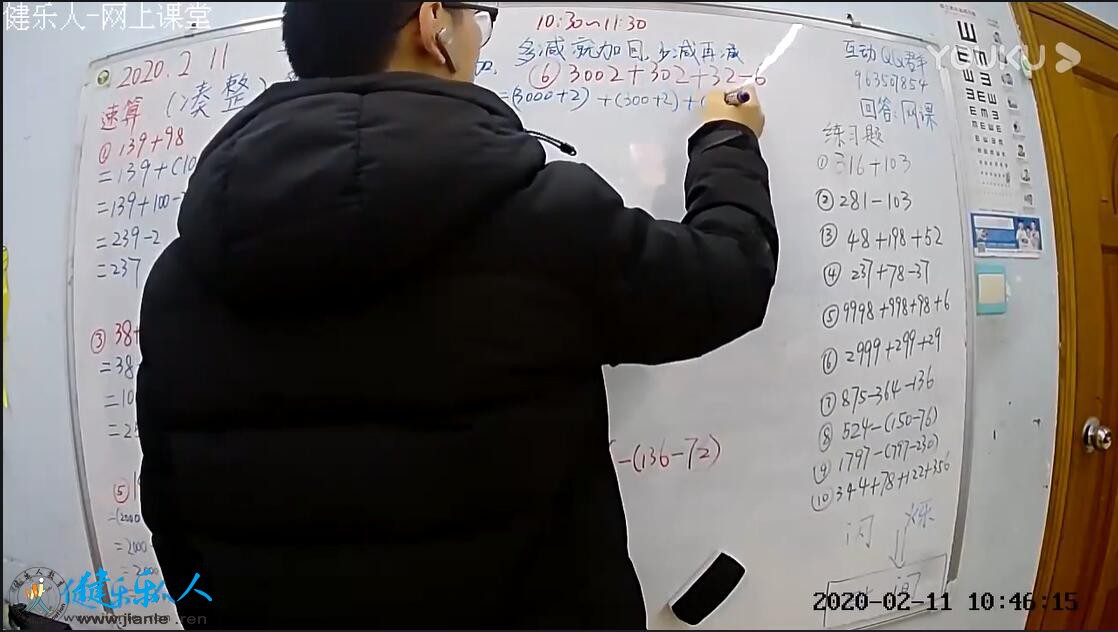 健乐人-网上课堂
YOUKU
2020.2 11
速算 (凑整)
① 139+98
=139+(10
=139+100-
=239-2
=237
③ 38+
=38
=10
=2
⑤ 1
=(2000
=2000
=2000
10:30~11:30
多减就加回,少减再减
⑥ 3002+302+32-6
=(3000+2)+(300+2)+(
-(136-72)
互动QQ群
963509854
回答:网课
练习题
① 316+103
② 281-103
③ 48+198+52
④ 237+78-37
⑤ 9998+998+98+6
⑥ 2999+299+29
⑦ 875-364-136
⑧ 524-(150-76)
⑨ 1797-(797-230)
⑩ 344+78+122+356
健乐人
www.jianle .ren
2020-02-11 10:46:15